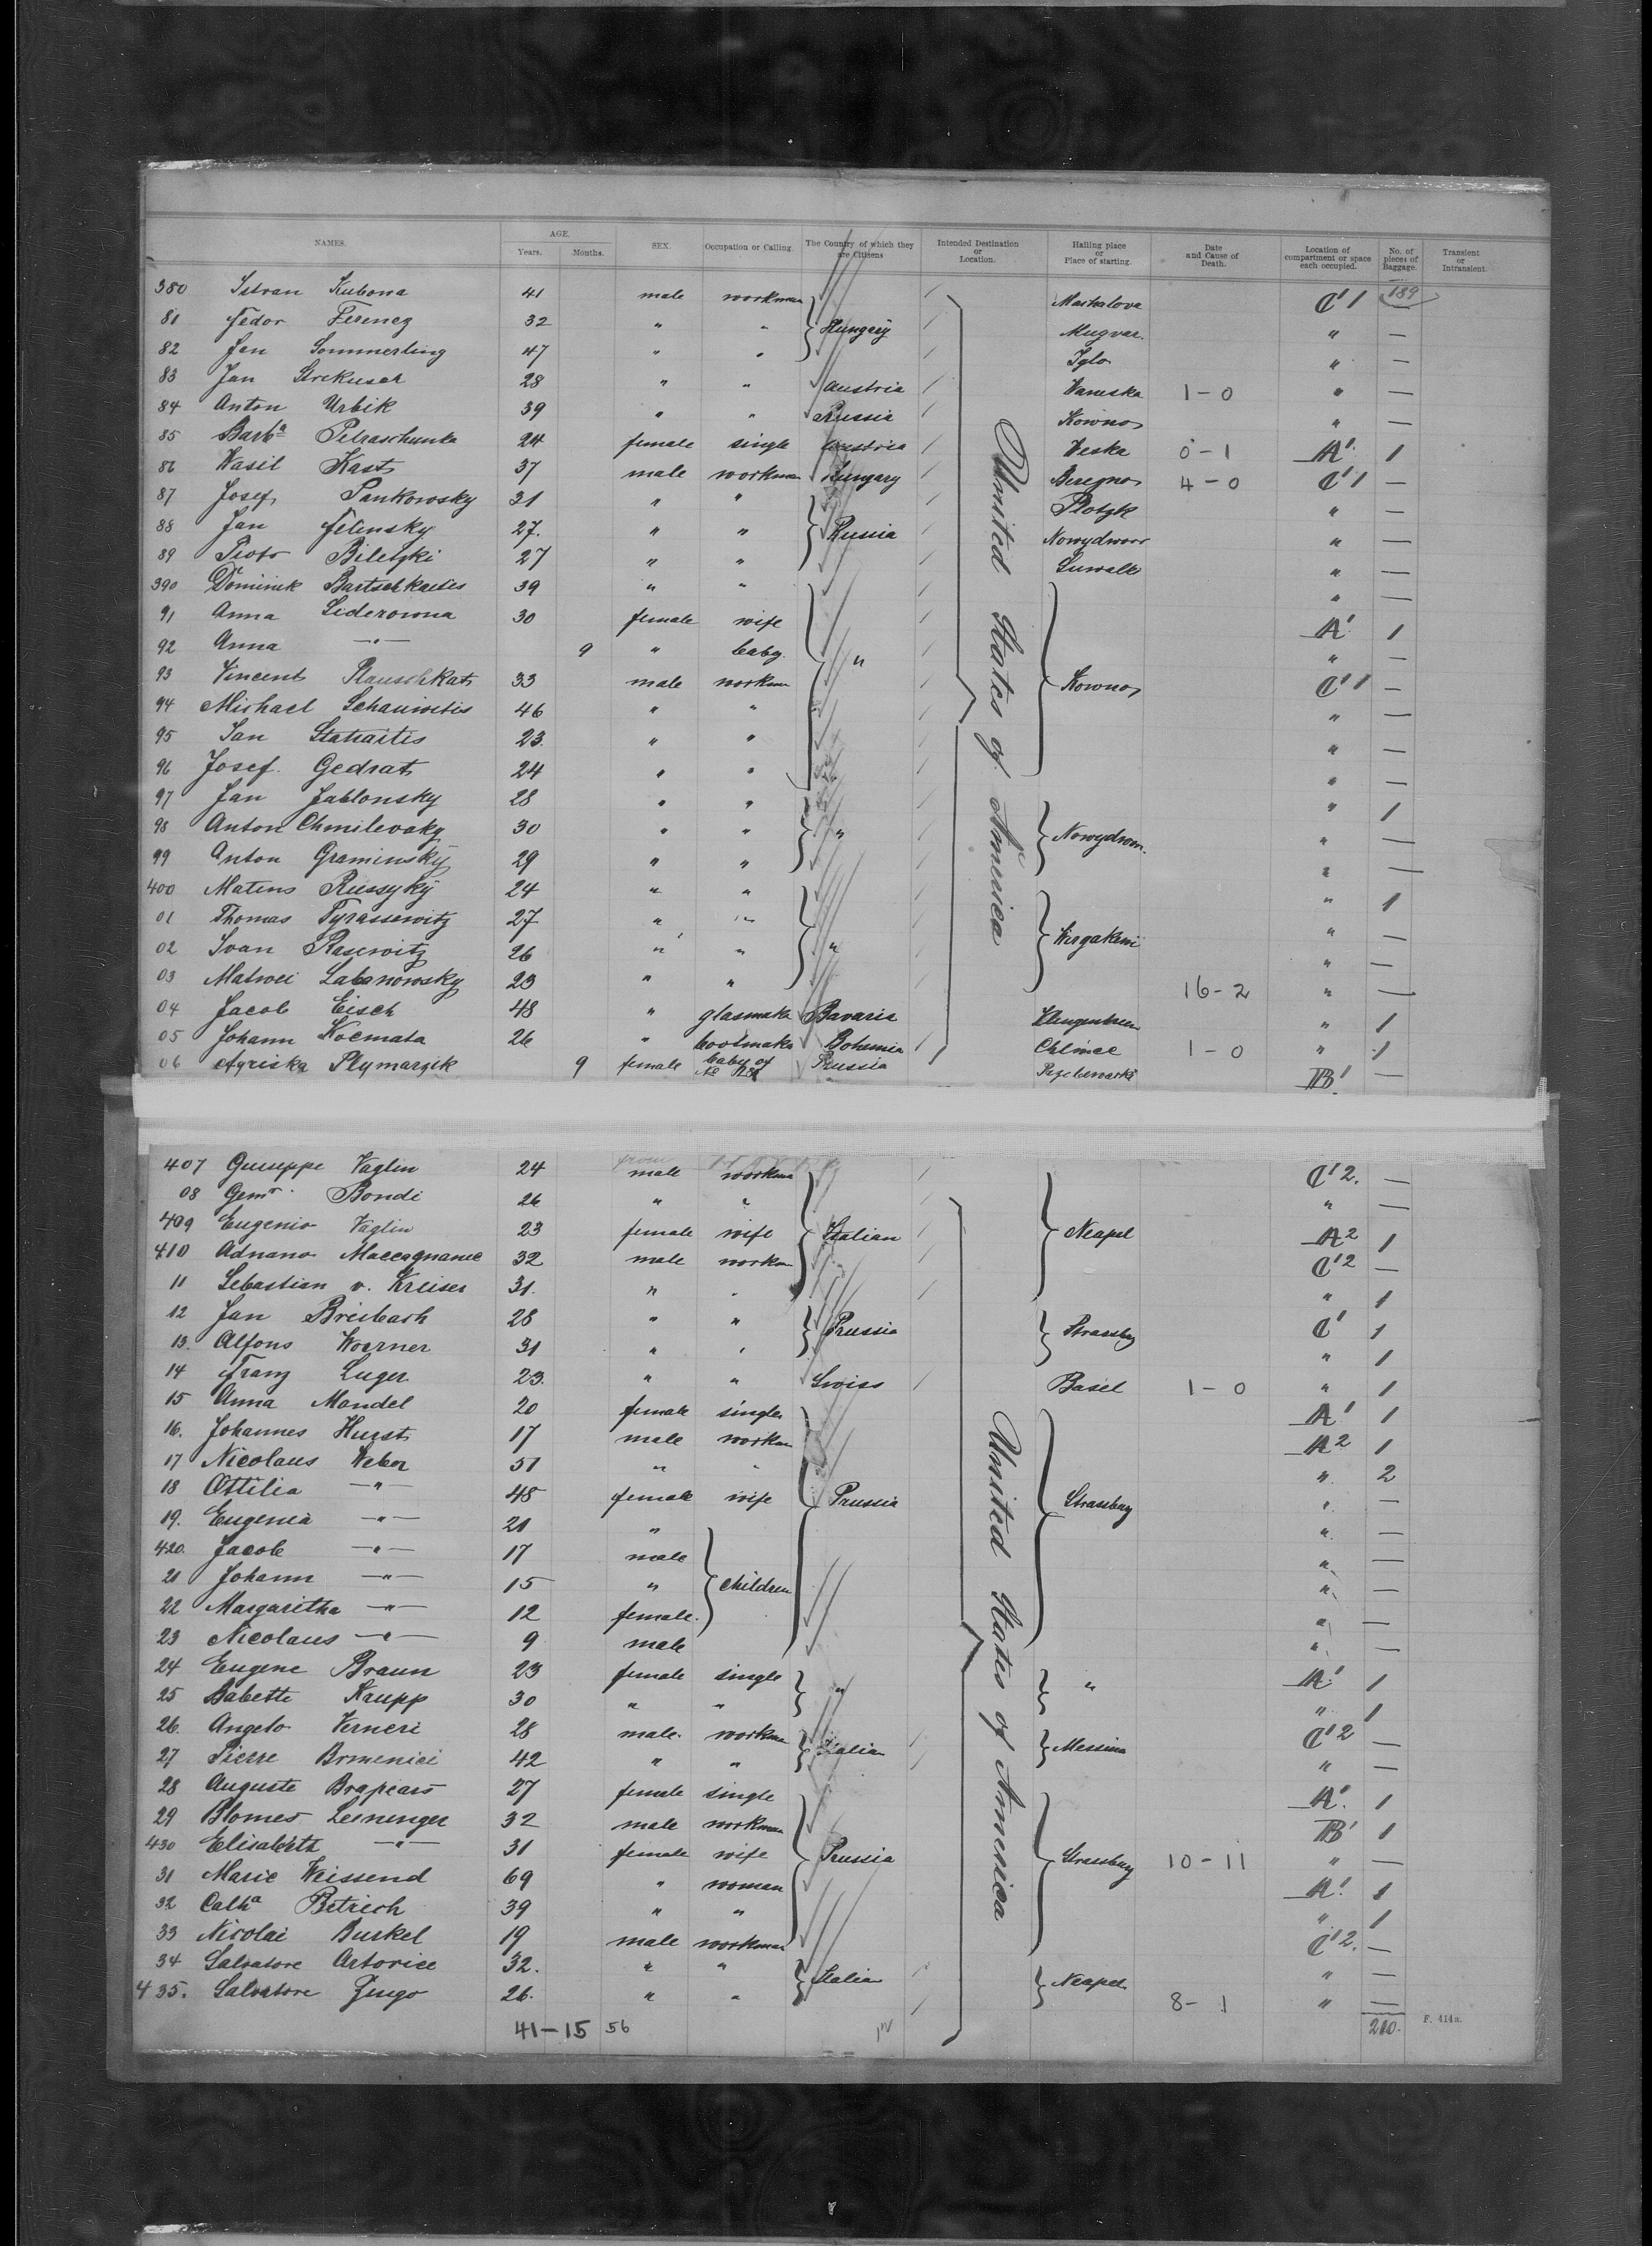 NAMES. AGE. Years. Months. SEX. Occupation or Calling. The Country of which they are Citizens Intended Destination or Location. Hailing place or Place of starting. Date and Cause of Death. Location of compartment or space each occupied. No. of pieces of Baggage. Transient or Intransient.
189
380 Istvan Kubona 41 male workman C'1 —
81 Fedor Ferencz 32 " " Hungary " —
82 Jan Sommerling 47 " " Iglo " —
83 Jan Strekusch 28 " " Austria 1-0 " —
84 Anton Urbik 39 " " Russia Kowno " —
85 Barbª 24 female single Austria Weska 0-1 A' 1
86 Wasil Kast 37 male workman Hungary Beregno 4-0 C'1 —
87 Josef Pankowsky 31 " " Plotzk " —
88 Jan Jelinsky 27. " " Russia Nowydwor " —
89 Piotr Biletzki 27 " " Suwalk " —
390 Dominik Bartschkaitis 39 " " " —
91 Anna Siderowna 30 female wife A' 1
92 Anna —"— 9 " baby " " —
93 Vincent Rauschkat 33 male workm Kowno C'1 —
94 Michael Schauwitis 46 " " " —
95 Jan Stataitis 23. " " " —
96 Josef Gedrat 24 " " " —
97 Jan Jablonsky 28 " " " 1
98 Anton Chmilevsky 30 " " " Nowydwor. " —
99 Anton Graminsky 29 " " " —
400 Matens Russyky 24 " " " 1
01 Thomas Tyrassewitz 27 " " " —
02 Ivan Rasewitz 26 " " " Wirgakeni " —
03 Matwei Labanowsky 23 " " 16-2 " —
04 Jacob Eisch 48 " glasmake Bavaria " 1
05 Johann Kocmata 26 " bootmake Bohemia 1-0 " 1
06 Agriska Plymarzik 9 female baby of Russia B' —
United States of America
407 Guiseppe Vaglin 24 male workman C'2. —
08 Gemr. Bondi 26 " " " —
409 Eugenio Vaglin 23 female wife Italian Neapel A2 1
410 Adnano Maccagnanie 32 male workm C'2 —
11 Sebastian v. Kreiser 31. " " " 1
12 Jan Breibach 28 " " Prussia Strassbg C' 1
13. Alfons Woerner 31 " " " 1
14 Franz Luger 23. " " Swiss Basel 1-0 " 1
15 Anna Mandel 20 female single A' 1
16. Johannes Hurst 17 male workm A2 1
17 Nicolaus Weber 51 " " " 2
18 Ottilia —"— 45 female wife Prussia Strassburg " —
19. Eugenia —"— 21 " " —
420. Jacob —"— 17 male " —
21 Johann —"— 15 " children " —
22 Margaritha —"— 12 female. " —
23 Nicolaus —"— 9 male " —
24 Eugene Braun 23 female single " " A' 1
25 Babette Krupp 30 " " " 1
26. Angelo Verneri 28 male. workm Italian Messina C'2 —
27 Pierre Bomenici 42 " " " —
28 Auguste Brapears 27 female single A'. 1
29 Blomes Leininger 32 male workman B' 1
430 Elisabeth —"— 31 female wife Prussia Strassburg 10-11 " —
31 Marie Weissend 69 " woman A'. 1
32 Cathª Petrich 39 " " " 1
33 Nicolai Burkel 19 male workman C'2. —
34 Salvatore Artorice 32. " " Italian Neapel " —
435. Salvatore Zingo 26. " " 8-1 " —
United States of America
41-15 56 210. F. 414a.